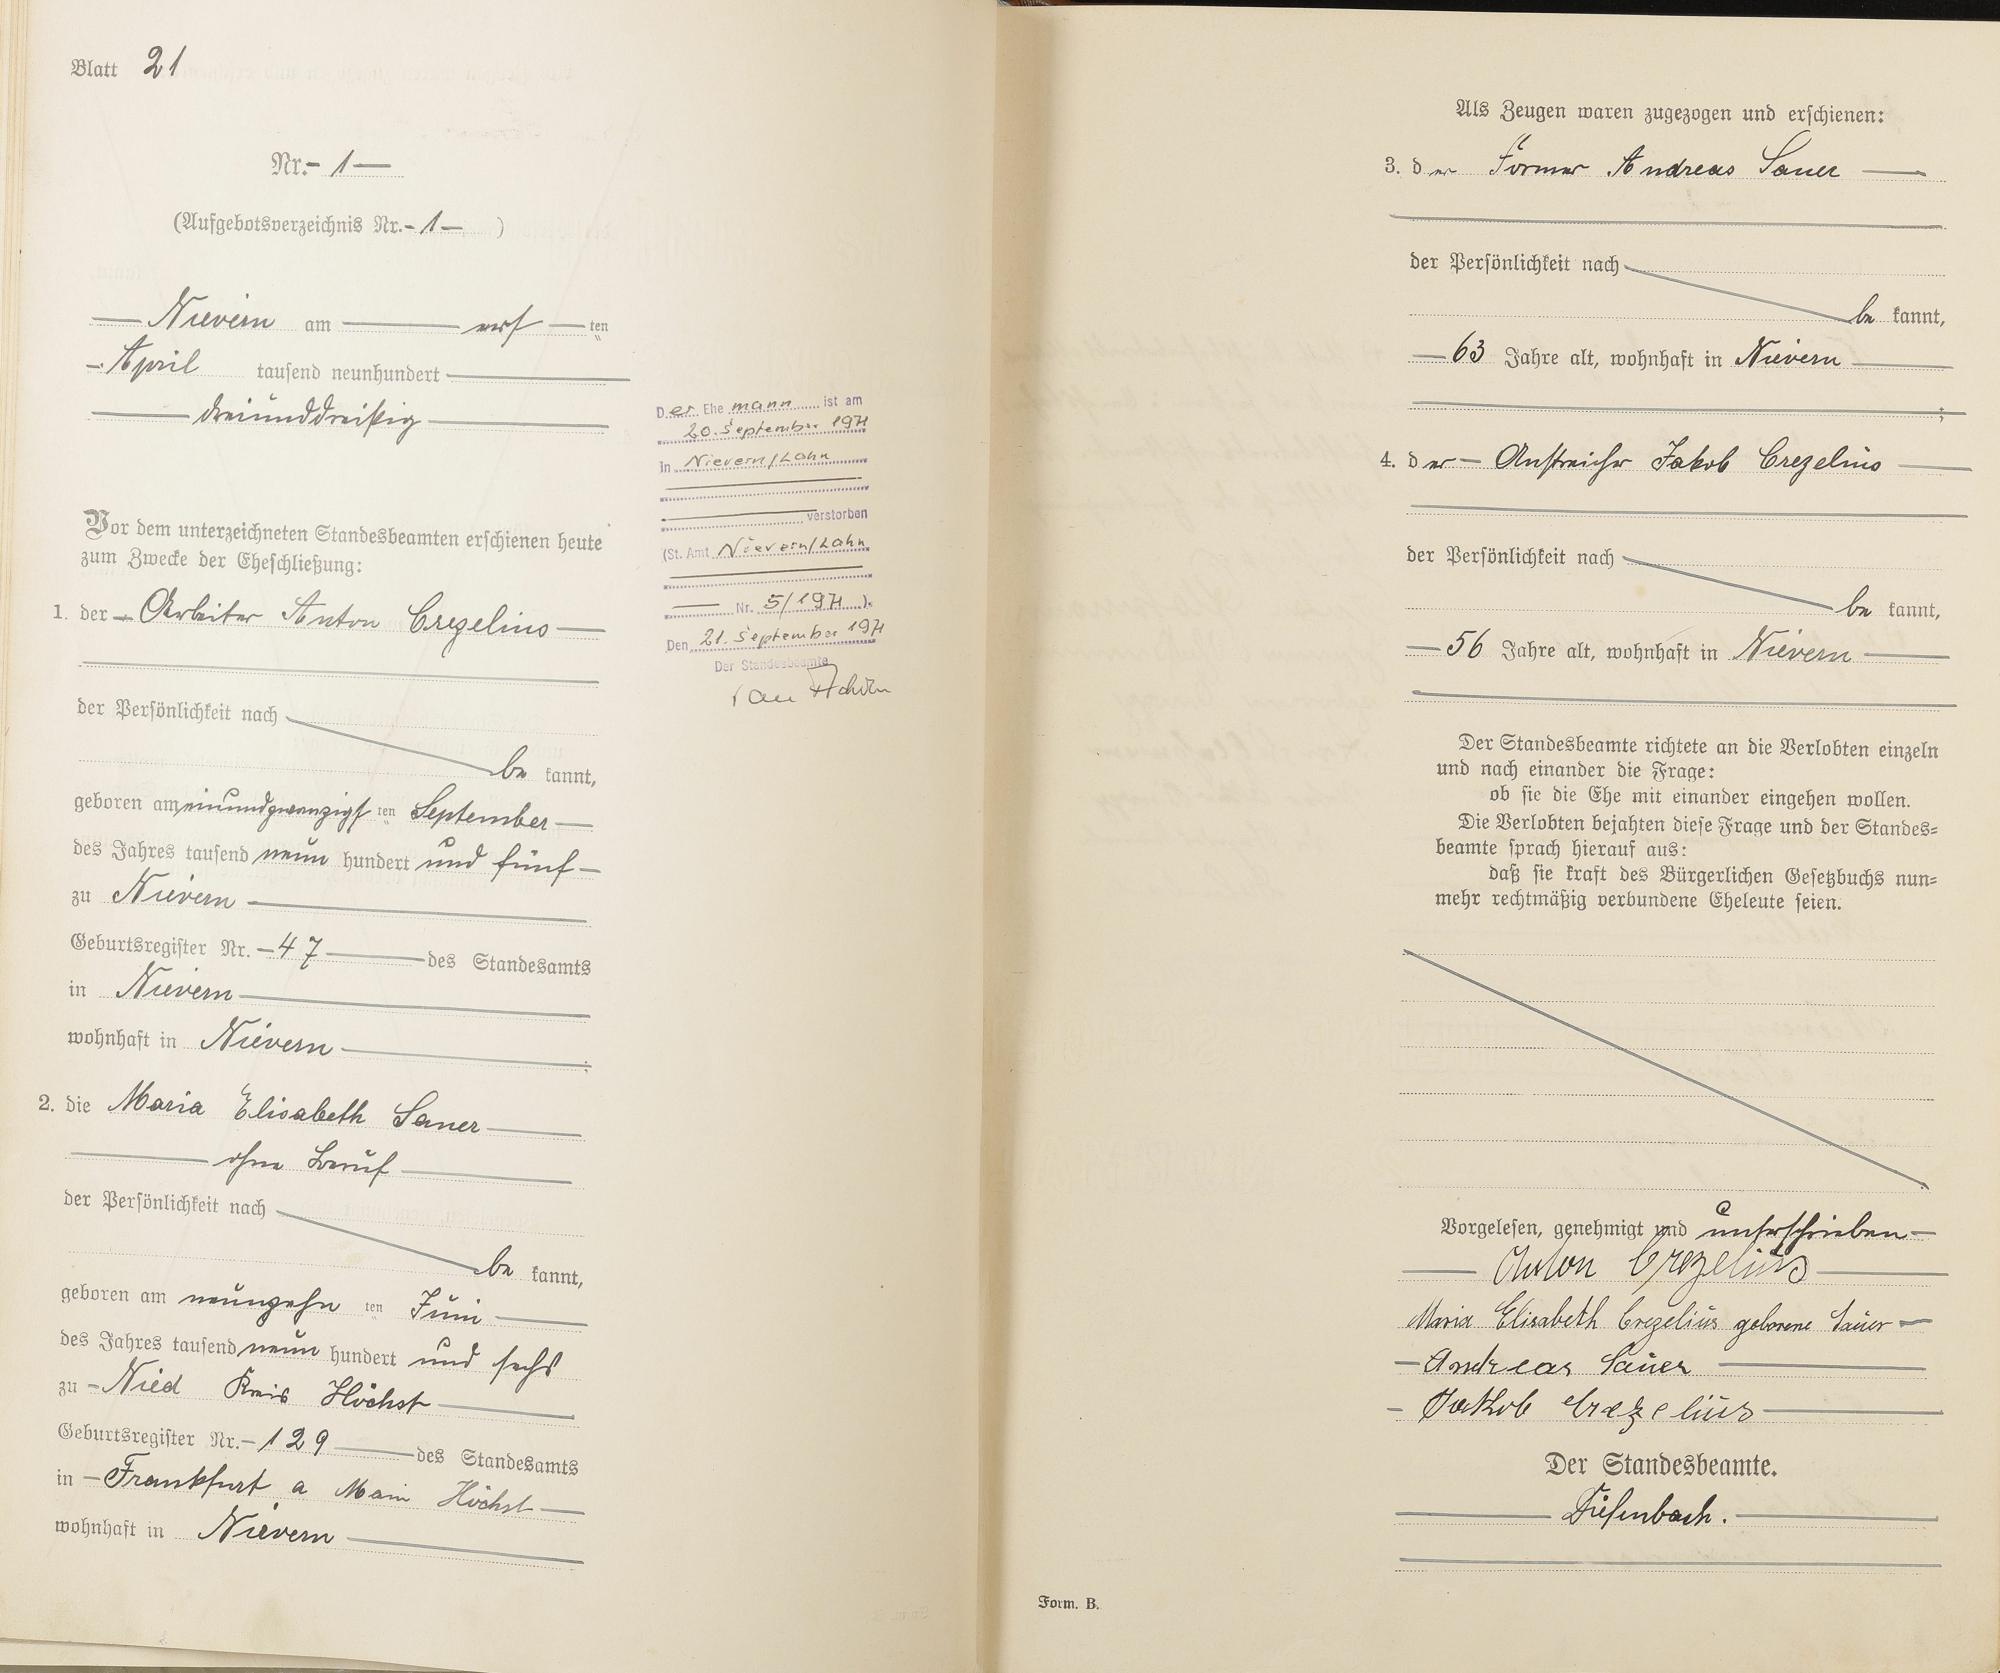 Blatt 21
Nr. 1
(Aufgebotsverzeichnis Nr. 1 )
Nievern am erst ten
April tausend neunhundert
dreiunddreißig
Vor dem unterzeichneten Standesbeamten erschienen heute
zum Zwecke der Eheschließung:
1. der Arbeiter Anton Crezelius
der Persönlichkeit nach
be kannt,
geboren am einundzwanzigst ten September
des Jahres tausend neun hundert und fünf
zu Nievern
Geburtsregister Nr. 47 des Standesamts
in Nievern
wohnhaft in Nievern
2. die Maria Elisabeth Sauer
ohne Beruf
der Persönlichkeit nach
be kannt,
geboren am neunzehn ten Juni
des Jahres tausend neun hundert und sechs
zu Nied Kreis Höchst
Geburtsregister Nr. 129 des Standesamts
in Frankfurt a Main Höchst
wohnhaft in Nievern
Der Ehemann ist am
20. September 1971
in Nievern/Lahn
verstorben
(St. Amt Nievern/Lahn
Nr. 5/1971 ).
Den 21. September 1971
Der Standesbeamte
Als Zeugen waren zugezogen und erschienen:
3. der Former Andreas Sauer
der Persönlichkeit nach
be kannt,
63 Jahre alt, wohnhaft in Nievern
;
4. der Anstreicher Jakob Crezelius
der Persönlichkeit nach
be kannt,
56 Jahre alt, wohnhaft in Nievern
Der Standesbeamte richtete an die Verlobten einzeln
und nach einander die Frage:
ob sie die Ehe mit einander eingehen wollen.
Die Verlobten bejahten diese Frage und der Standes=
beamte sprach hierauf aus:
daß sie kraft des Bürgerlichen Gesetzbuchs nun=
mehr rechtmäßig verbundene Eheleute seien.
Vorgelesen, genehmigt und unterschrieben
Anton Crezelius
Maria Elisabeth Crezelius geborene Sauer
Andreas Sauer
Jakob Crezelius
Der Standesbeamte.
Tiefenbach.
Form. B.